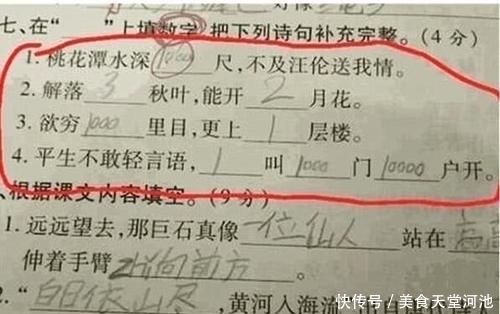 七、在“______”上填数字,把下列诗句补充完整。(4分)
1. 桃花潭水深 1000 尺,不及汪伦送我情。
2. 解落 3 秋叶,能开 2 月花。
3. 欲穷 1000 里目,更上 1 层楼。
4. 平生不敢轻言语, 1 叫 1000 门 10000 户开。
、根据课文内容填空。(9分)
1. 远远望去,那巨石真像 一位仙人 站在
伸着手臂 指向前方 。
2. “ 白日依山尽 ,黄河入海流
快传号/美食天堂河池